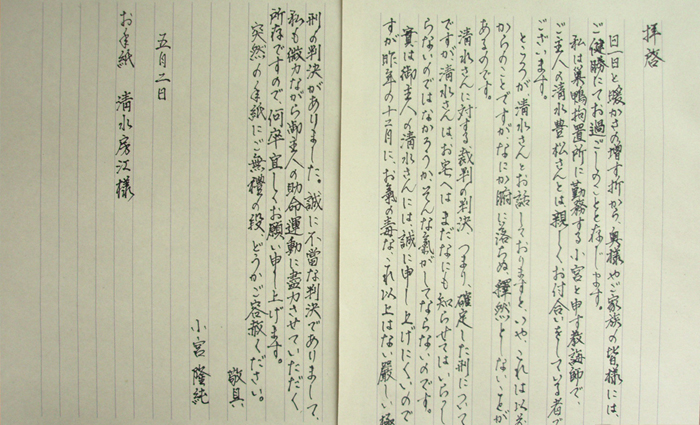 拝啓
一日一日と暖かさの増す折から、奥様やご家族の皆様には、
ご健勝にてお過ごしのことと存じます。
私は巣鴨拘置所に勤務する小宮と申す教誨師で、
ご主人の清水豊松さんとは、親しくお付合いをしている者で
ございます。
ところが清水さんとお話しておりますと、いや、これは以前
からのことですがなにか腑に落ちぬ、釈然としないことが
あるのです。
清水さんに対する裁判の判決、つまり、確定した刑について
ですが清水さんは、お宅へはまだなにも知らせてはいらっし
らないのではなかろうか、そんな気がしてならないのです。
實は御主人の清水さんには、誠に申し上げにくいので
すが昨年の十二月に、お氣の毒な、これ以上はない嚴しい極
刑の判決がありました。誠に不當な判決でありまして、
私も微力ながら御主人の助命運動に盡力させていただく
所存ですので、何卒宜しくお願い申し上げます。
突然の手紙にご無禮の段、どうかご容赦ください。
敬具
小宮隆純
五月二日
お手紙 清水房江様